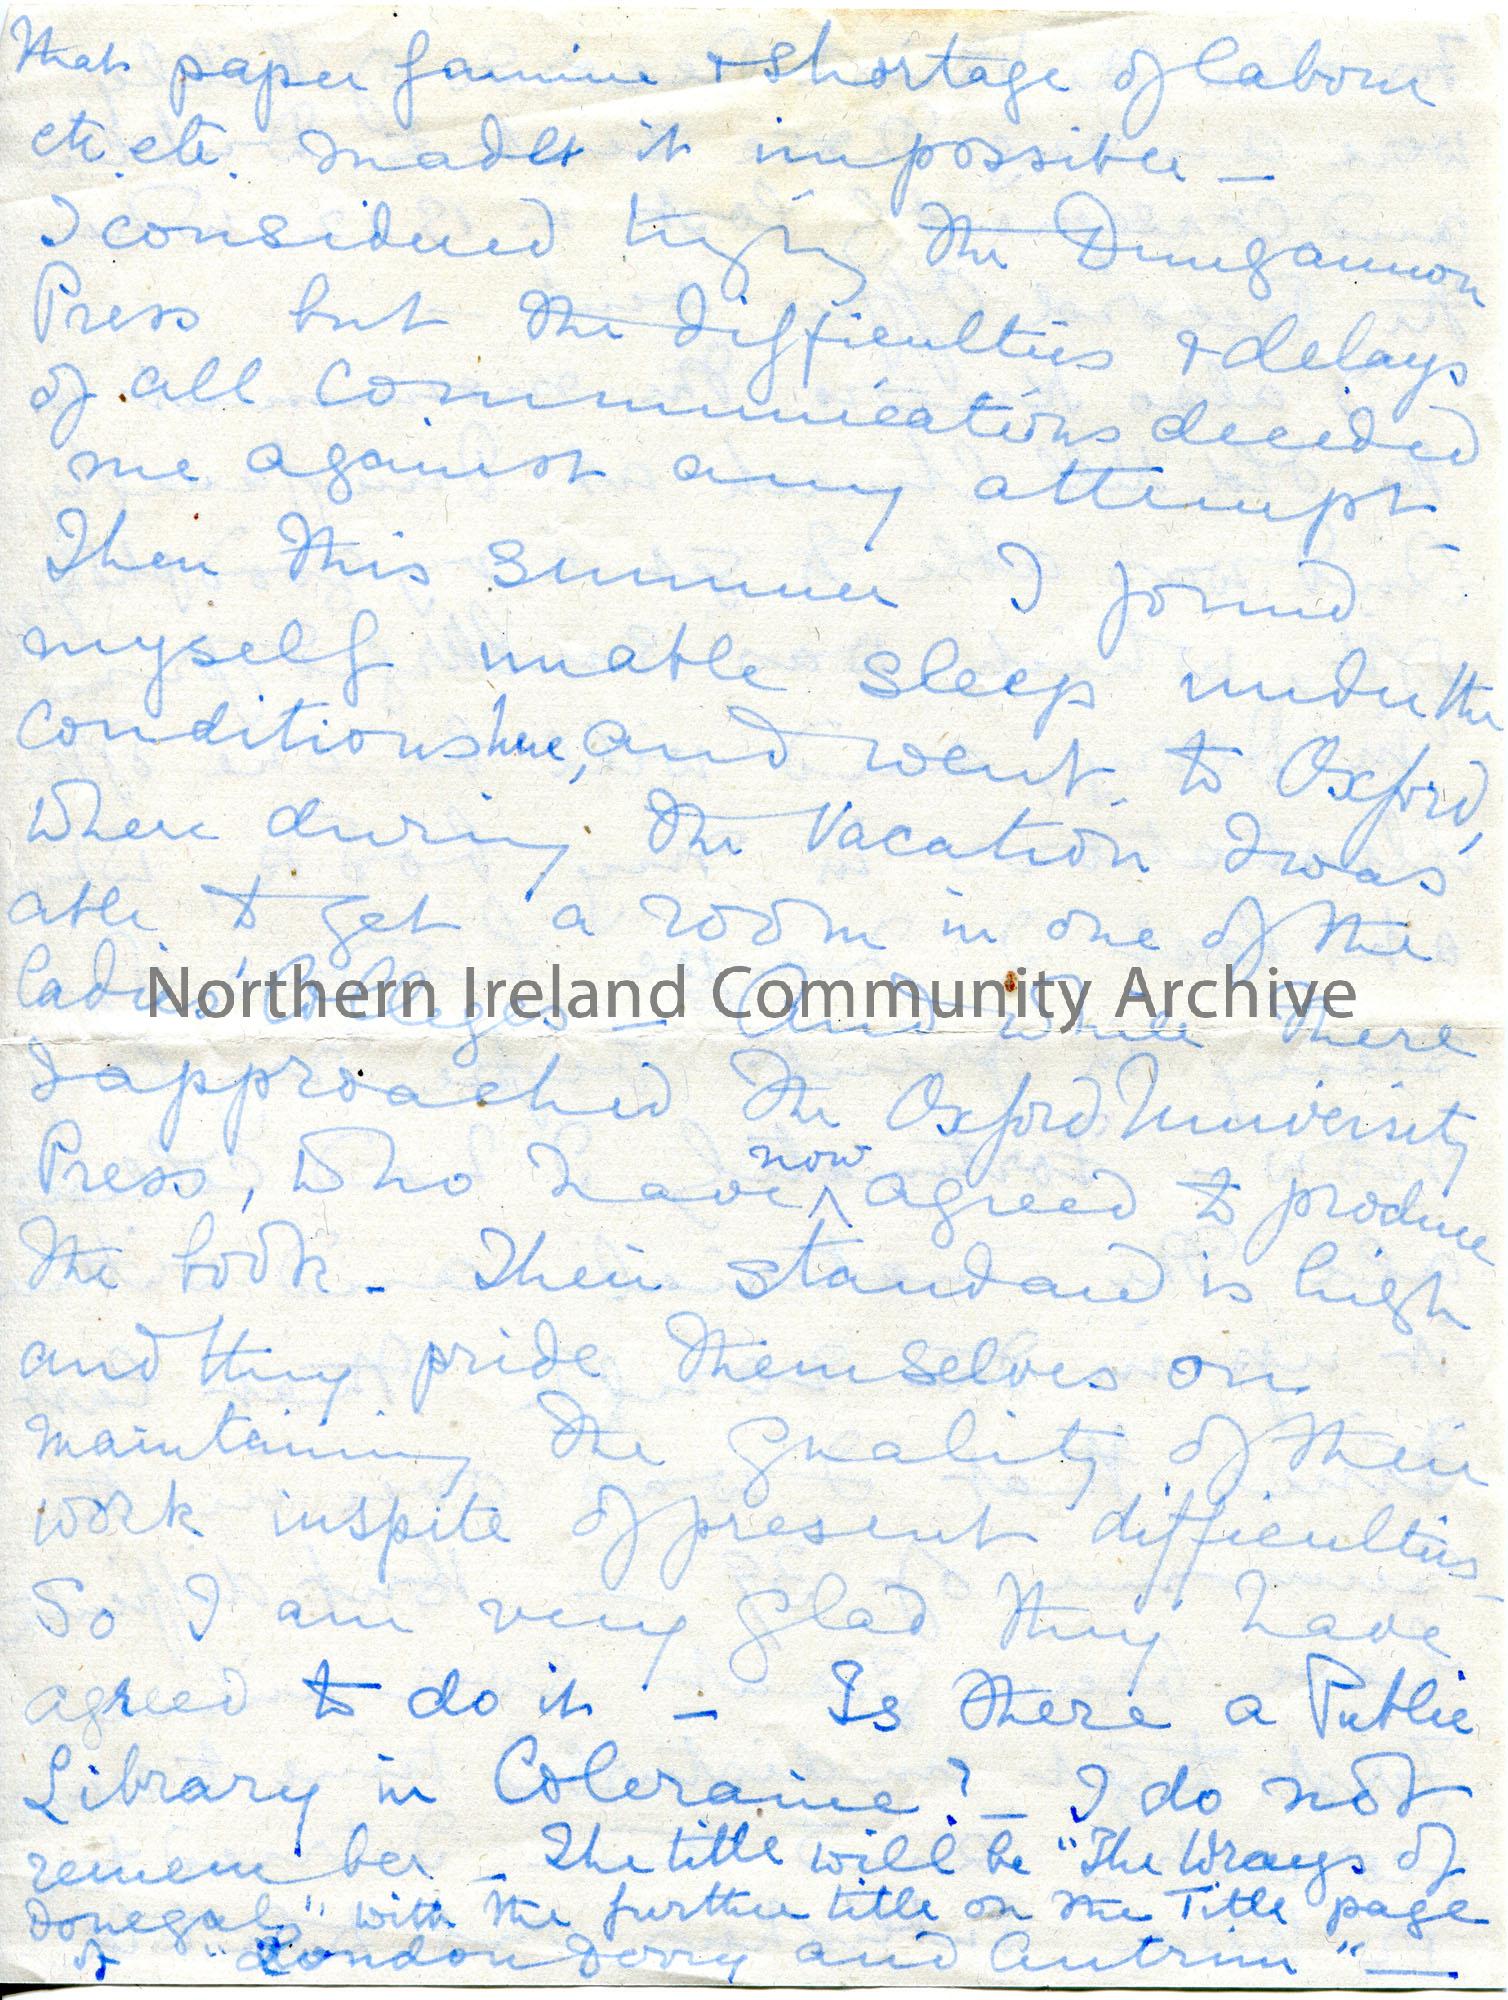 that paper famine & shortage of labour
etc etc. made it impossible —
I considered trying the Dungannon
Press but the difficulties & delays
of all communications decided
me against any attempt —
Then this summer I found
myself unable sleep under the
conditions here, and went to Oxford,
where during the Vacation I was
able to get a room in one of the
ladies' Colleges — And while there
Northern Ireland Community Archive
I approached the Oxford University
Press, who have now agreed to produce
the book - Their standard is high
and they pride themselves on
maintaining the quality of their
work inspite of present difficulties
So I am very glad they have
agreed to do it — Is there a Public
Library in Coleraine? — I do not
remember — The title will be "The Wrays of
Donegal," with the further title on the Title page
of "Londonderry and Antrim" —